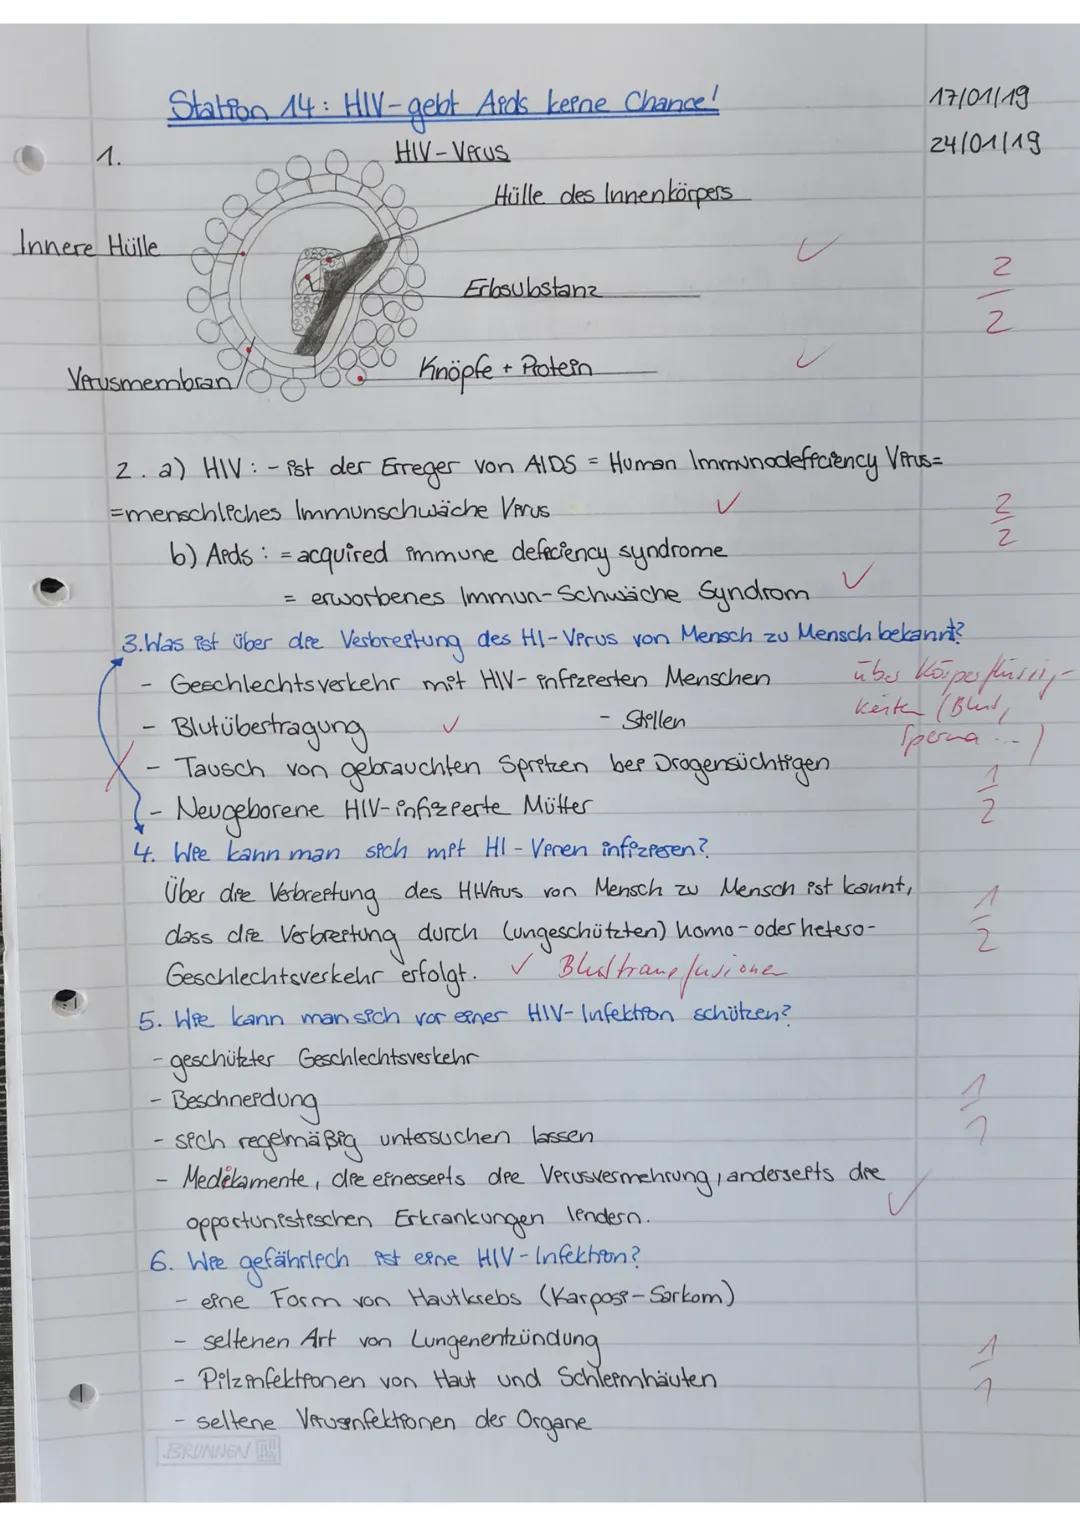 Station 14: HIV-gebt Aids keine Chance!
17/01/19
24/01/19
1.
HIV-Virus
Hülle des Innenkörpers
Innere Hülle
Erbsubstanz
2
2
Knöpfe + Protein
Virusmembran
2. a) HIV: - ist der Erreger von AIDS = Human Immunodefficiency Virus=
=menschliches Immunschwäche Virus
2
2
b) Aids: = acquired immune deficiency syndrome
= erworbenes Immun-Schwäche Syndrom
3. Was ist über die Verbreitung des HI-Virus von Mensch zu Mensch bekannt?
- Geschlechtsverkehr mit HIV-infizierten Menschen
über Körperflüssig-
keiten (Blut,
Sperma ...)
- Blutübertragung
- Stillen
- Tausch von gebrauchten Spritzen bei Drogensüchtigen
1
2
- Neugeborene HIV-infizierte Mütter
4. Wie kann man sich mit HI-Viren infizieren?
Über die Verbreitung des HIVirus von Mensch zu Mensch ist kannt,
dass die Verbreitung durch (ungeschützten) homo- oder hetero-
Geschlechtsverkehr erfolgt. Bluttransfusionen
1
2
5. Wie kann man sich vor einer HIV-Infektion schützen?
- geschützter Geschlechtsverkehr
- Beschneidung
- sich regelmäßig untersuchen lassen
1
1
- Medikamente, die einerseits die Virusvermehrung, anderseits die
opportunistischen Erkrankungen lindern.
6. Wie gefährlich ist eine HIV-Infektion?
- eine Form von Hautkrebs (Karposi-Sarkom)
- seltenen Art von Lungenentzündung
- Pilzinfektionen von Haut und Schleimhäuten
1
1
- seltene Virusinfektionen der Organe
BRUNNEN